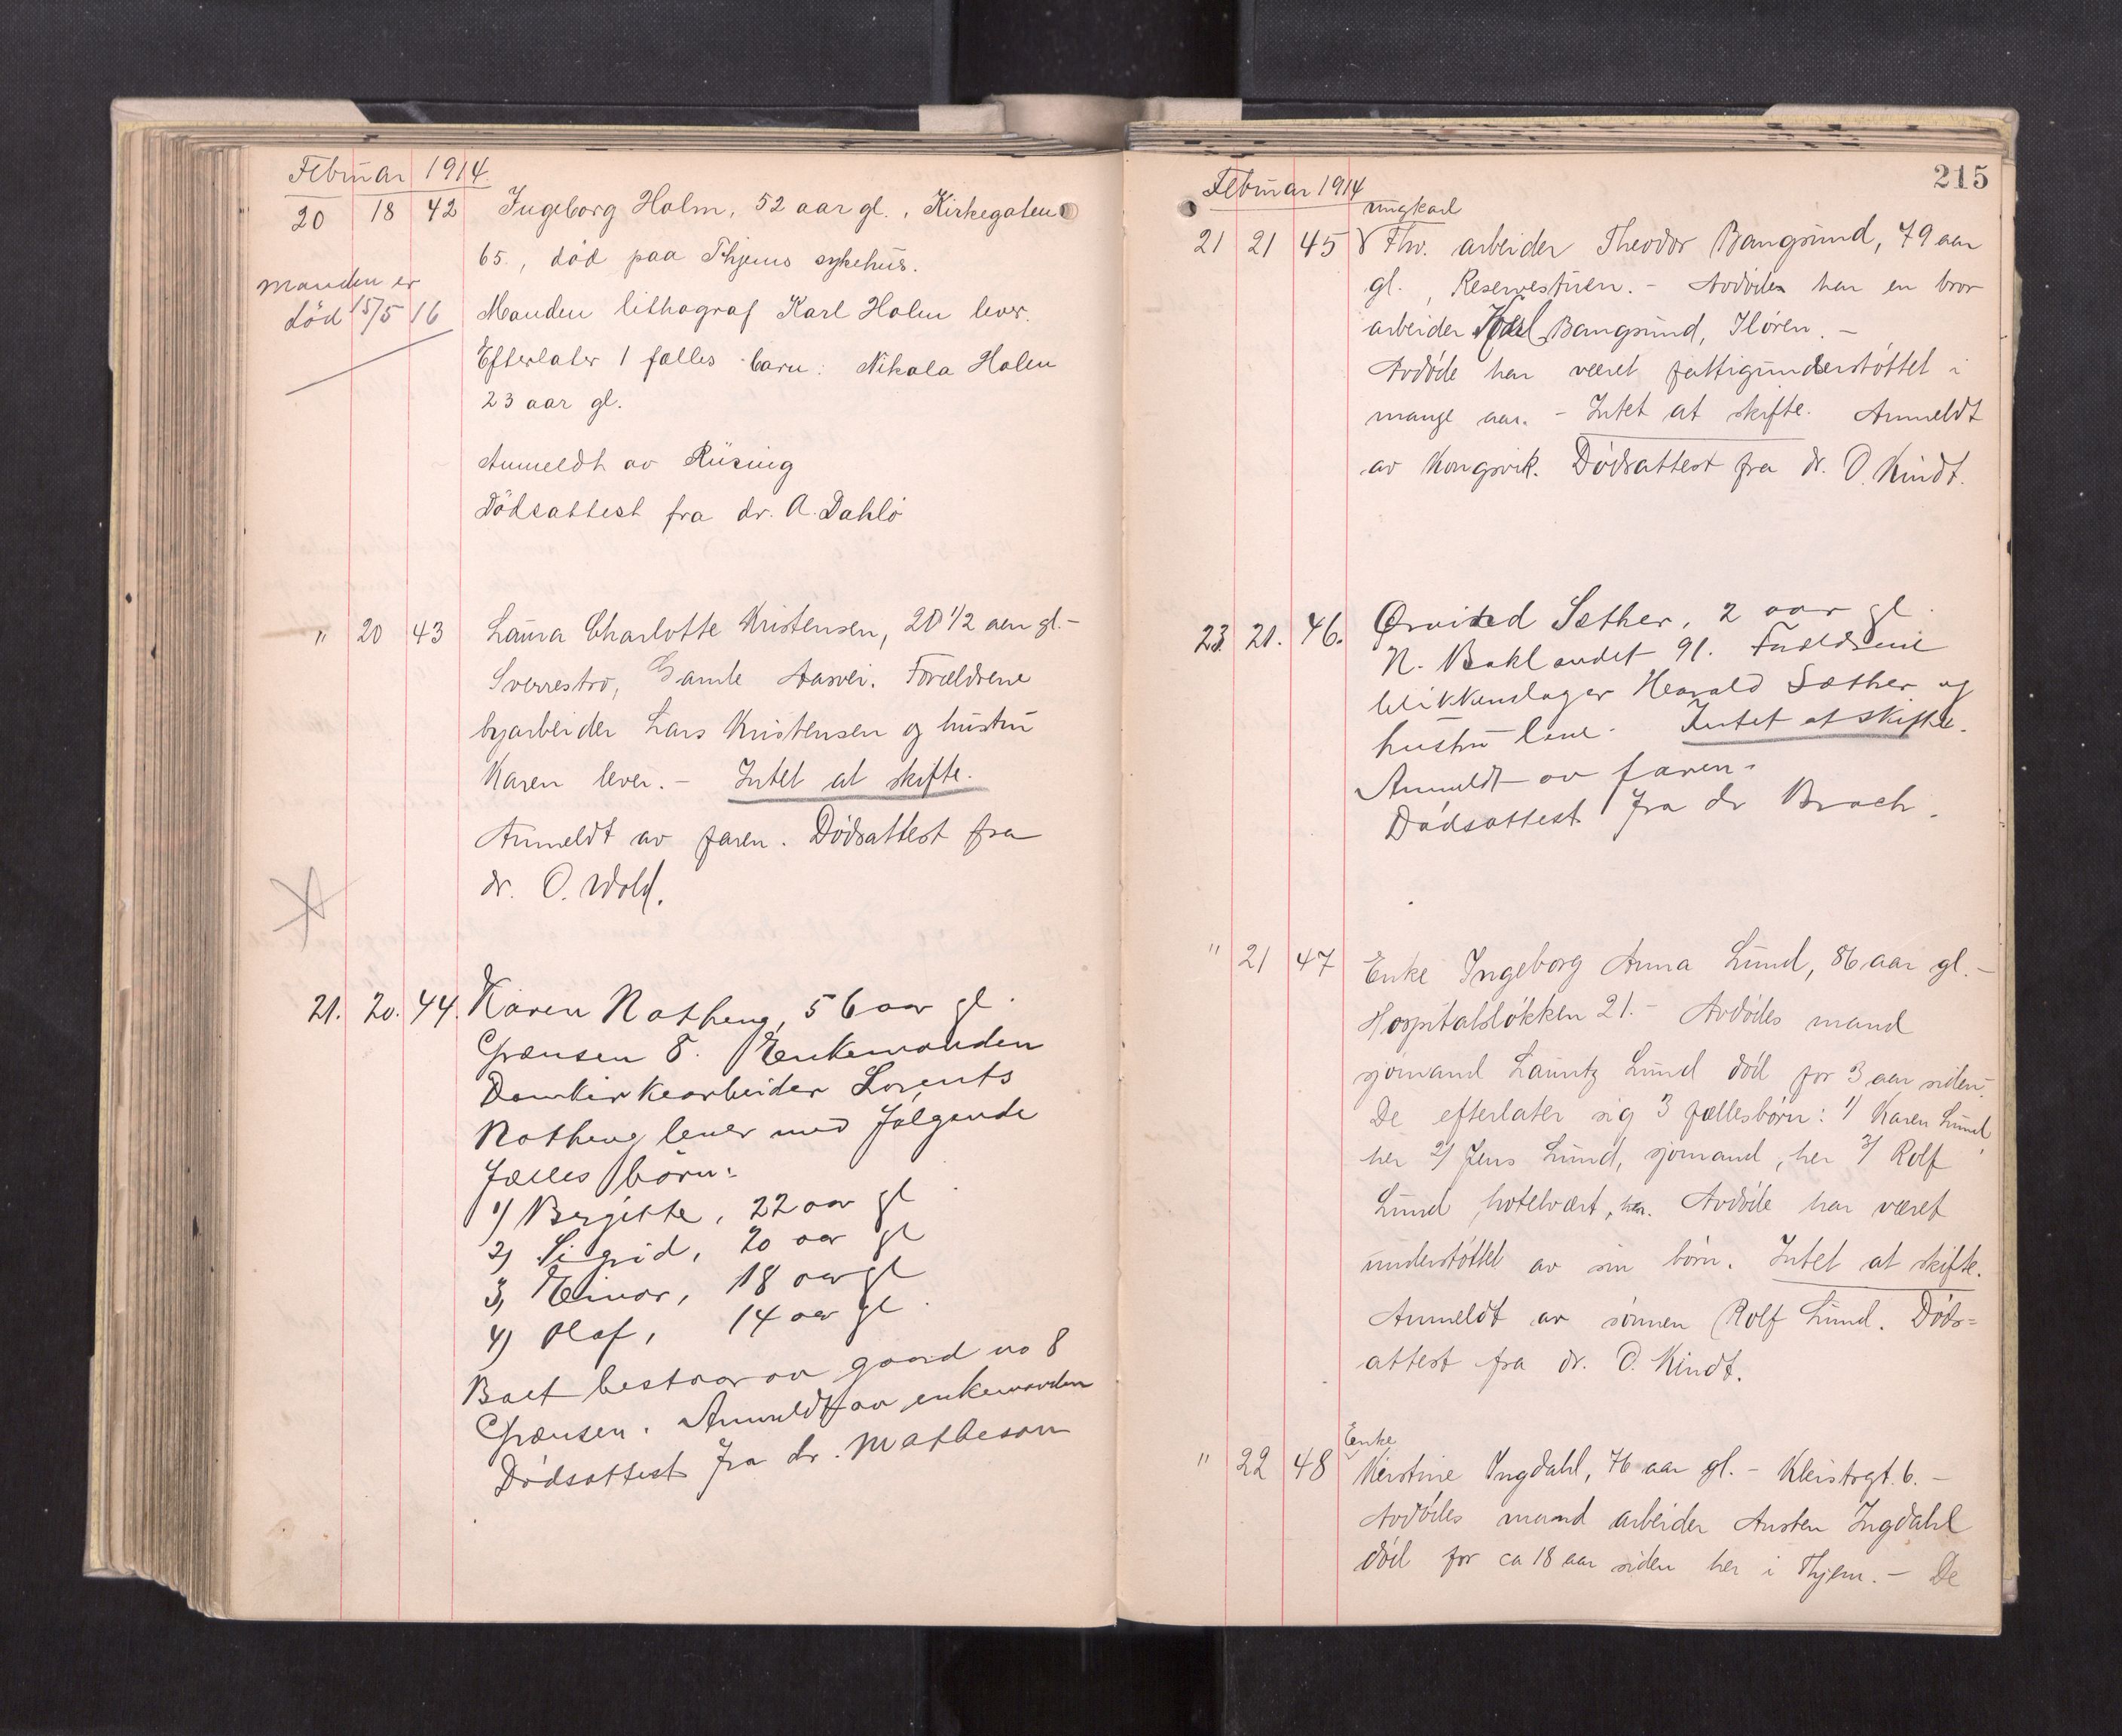 Februar 1914.
20 18 42 Ingeborg Holm, 52 aar gl., Kirkegaten
65., död paa Thjems sykehus.
Manden er
död 15/5 16
Manden lithograf Karl Holm lever.
Efterlater 1 fælles barn: Nikola Holm
23 aar gl.
Anmeldt av Rüsing
Dödsattest fra dr. A. Dahlö
" 20 43 Laura Charlotte Kristensen, 20 1/2 aar gl. -
Sverrestro, Gamle Aasvei. Forældrene
byarbeider Lars Kristensen og hustru
Karen lever. - Intet at skifte.
Anmeldt av faren. Dödsattest fra
dr. O. Wold.
21. 20. 44. Karen Notheng, 56 aar gl.
Grænsen 8. Enkemanden
Domkirkearbeider Lorents
Notheng lever med følgende
fælles børn:
1) Bergitte, 22 aar gl.
2) Sigrid, 20 aar gl
3, Einar, 18 aar gl
4) Olaf, 14 aar gl.
Boet bestaar av gaard no 8
Grænsen. Anmeldt av enkemanden
Dødsattest fra dr. Matheson
215
Februar 1914
ungkarl
21 21 45 Fhv. arbeider Theodor Bangsund, 79 aar
gl., Reservestuen. - Avdödes har en bror
arbeider Karl Bangsund, Ilören. -
Avdöde har været fattigunderstöttet i
mange aar. - Intet at skifte. Anmeldt
av Kongsvik. Dödsattest fra dr. O. Kindt.
23. 21. 46. Ørvind Sæther, 2 aar gl.
N. Baklandet 91. Forældrene
blikkenslager Harald Sæther og
hustru leve. Intet at skifte.
Anmeldt av faren.
Dødsattest fra dr Broch.
" 21 47 Enke Ingeborg Anna Lund, 86 aar gl. -
Hospitalslökken 21. - Avdödes mand
sjömand Lauritz Lund död for 3 aar siden. -
De efterlater sig 3 fællesbörn: 1/ Karen Lund,
her 2/ Jens Lund, sjömand, her 3/ Rolf
Lund, hotelvært, her. Avdöde har været
understöttet av sin börn. Intet at skifte.
Anmeldt av sönnen Rolf Lund. Döds=
attest fra dr. O. Kindt.
Enke
" 22 48 Kirstine Yngdahl, 76 aar gl. - Kleistrgt. 6. -
Avdödes mand arbeider Austen Ingdahl
död for ca 18 aar siden her i Thjem. - De